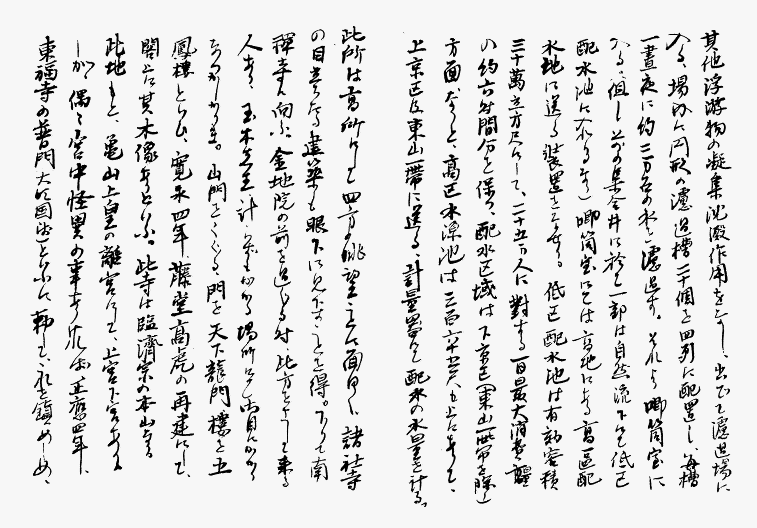 其他浮游物の凝集沈澱作用をなし、出でて濾過場に
入る、場内に円形の濾過槽二十個を四列に配置し、毎槽
一晝夜に約三万石の水を濾過す。それより喞筒室に
入る、但し前の集合井に於て一部は自然流下にて低区
配水池に入るなり 喞筒室にては高地にある高区配
水地に送る装置をなせり。低区配水池は有効容積
三十萬立方尺にして、二十五万人に對する一日最大消費量
の約六時間分を保つ、配水区域は下京区(東山一帯を除)
方面なりと、高区水源池は三百六十五尺八も上にありて、
上京区及東山一帯に送る、計量器にて配水の水量を計る。
此所は高所にして四方の眺望まことに面白く、諸社寺
の目立ちたる建築も眼下に見下すことを得。下りて南
禅寺に向ふ、金地院の前を過ぐる時此方をさして来る
人あり、玉木先生計らずもかかる場所にて御目にかかり
たりしかり。山門をくぐる、門を天下龍門、樓を五
鳳樓といひ、寛永四年、藤堂高虎の再建にして、
閣上に其木像ありといふ。此寺は臨濟宗の本山なり
此地もと、亀山上皇の離宮にて、上宮下宮ありし
が、偶々宮中怪異の事ありければ正應四年、
東福寺の普門(大明国師)といふに勅して、之を鎮めしめ、